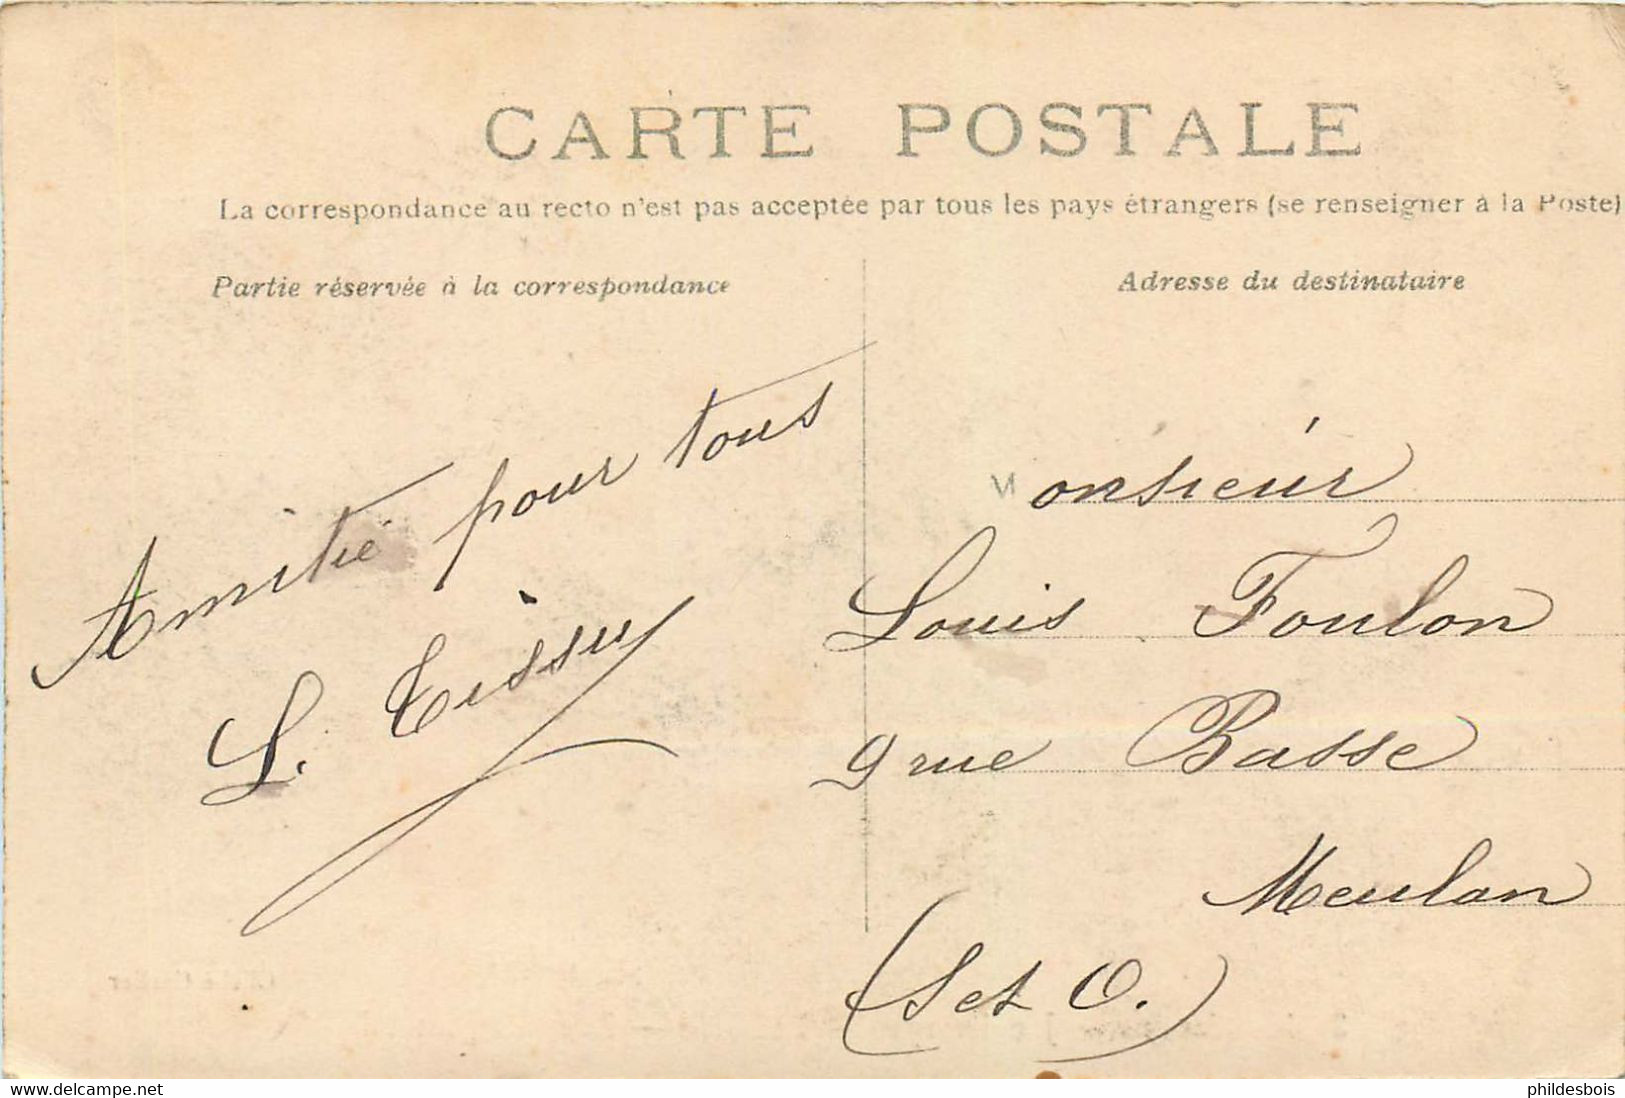 CARTE POSTALE
La correspondance au recto n'est pas acceptée par tous les pays étrangers (se renseigner à la Poste)
Partie réservée à la correspondance
Adresse du destinataire
Amitié pour tous
L. Tissu
Monsieur
Louis Foulon
9 rue Basse
Meulan
(S et O.)
www.delcampe.net
phildesbois